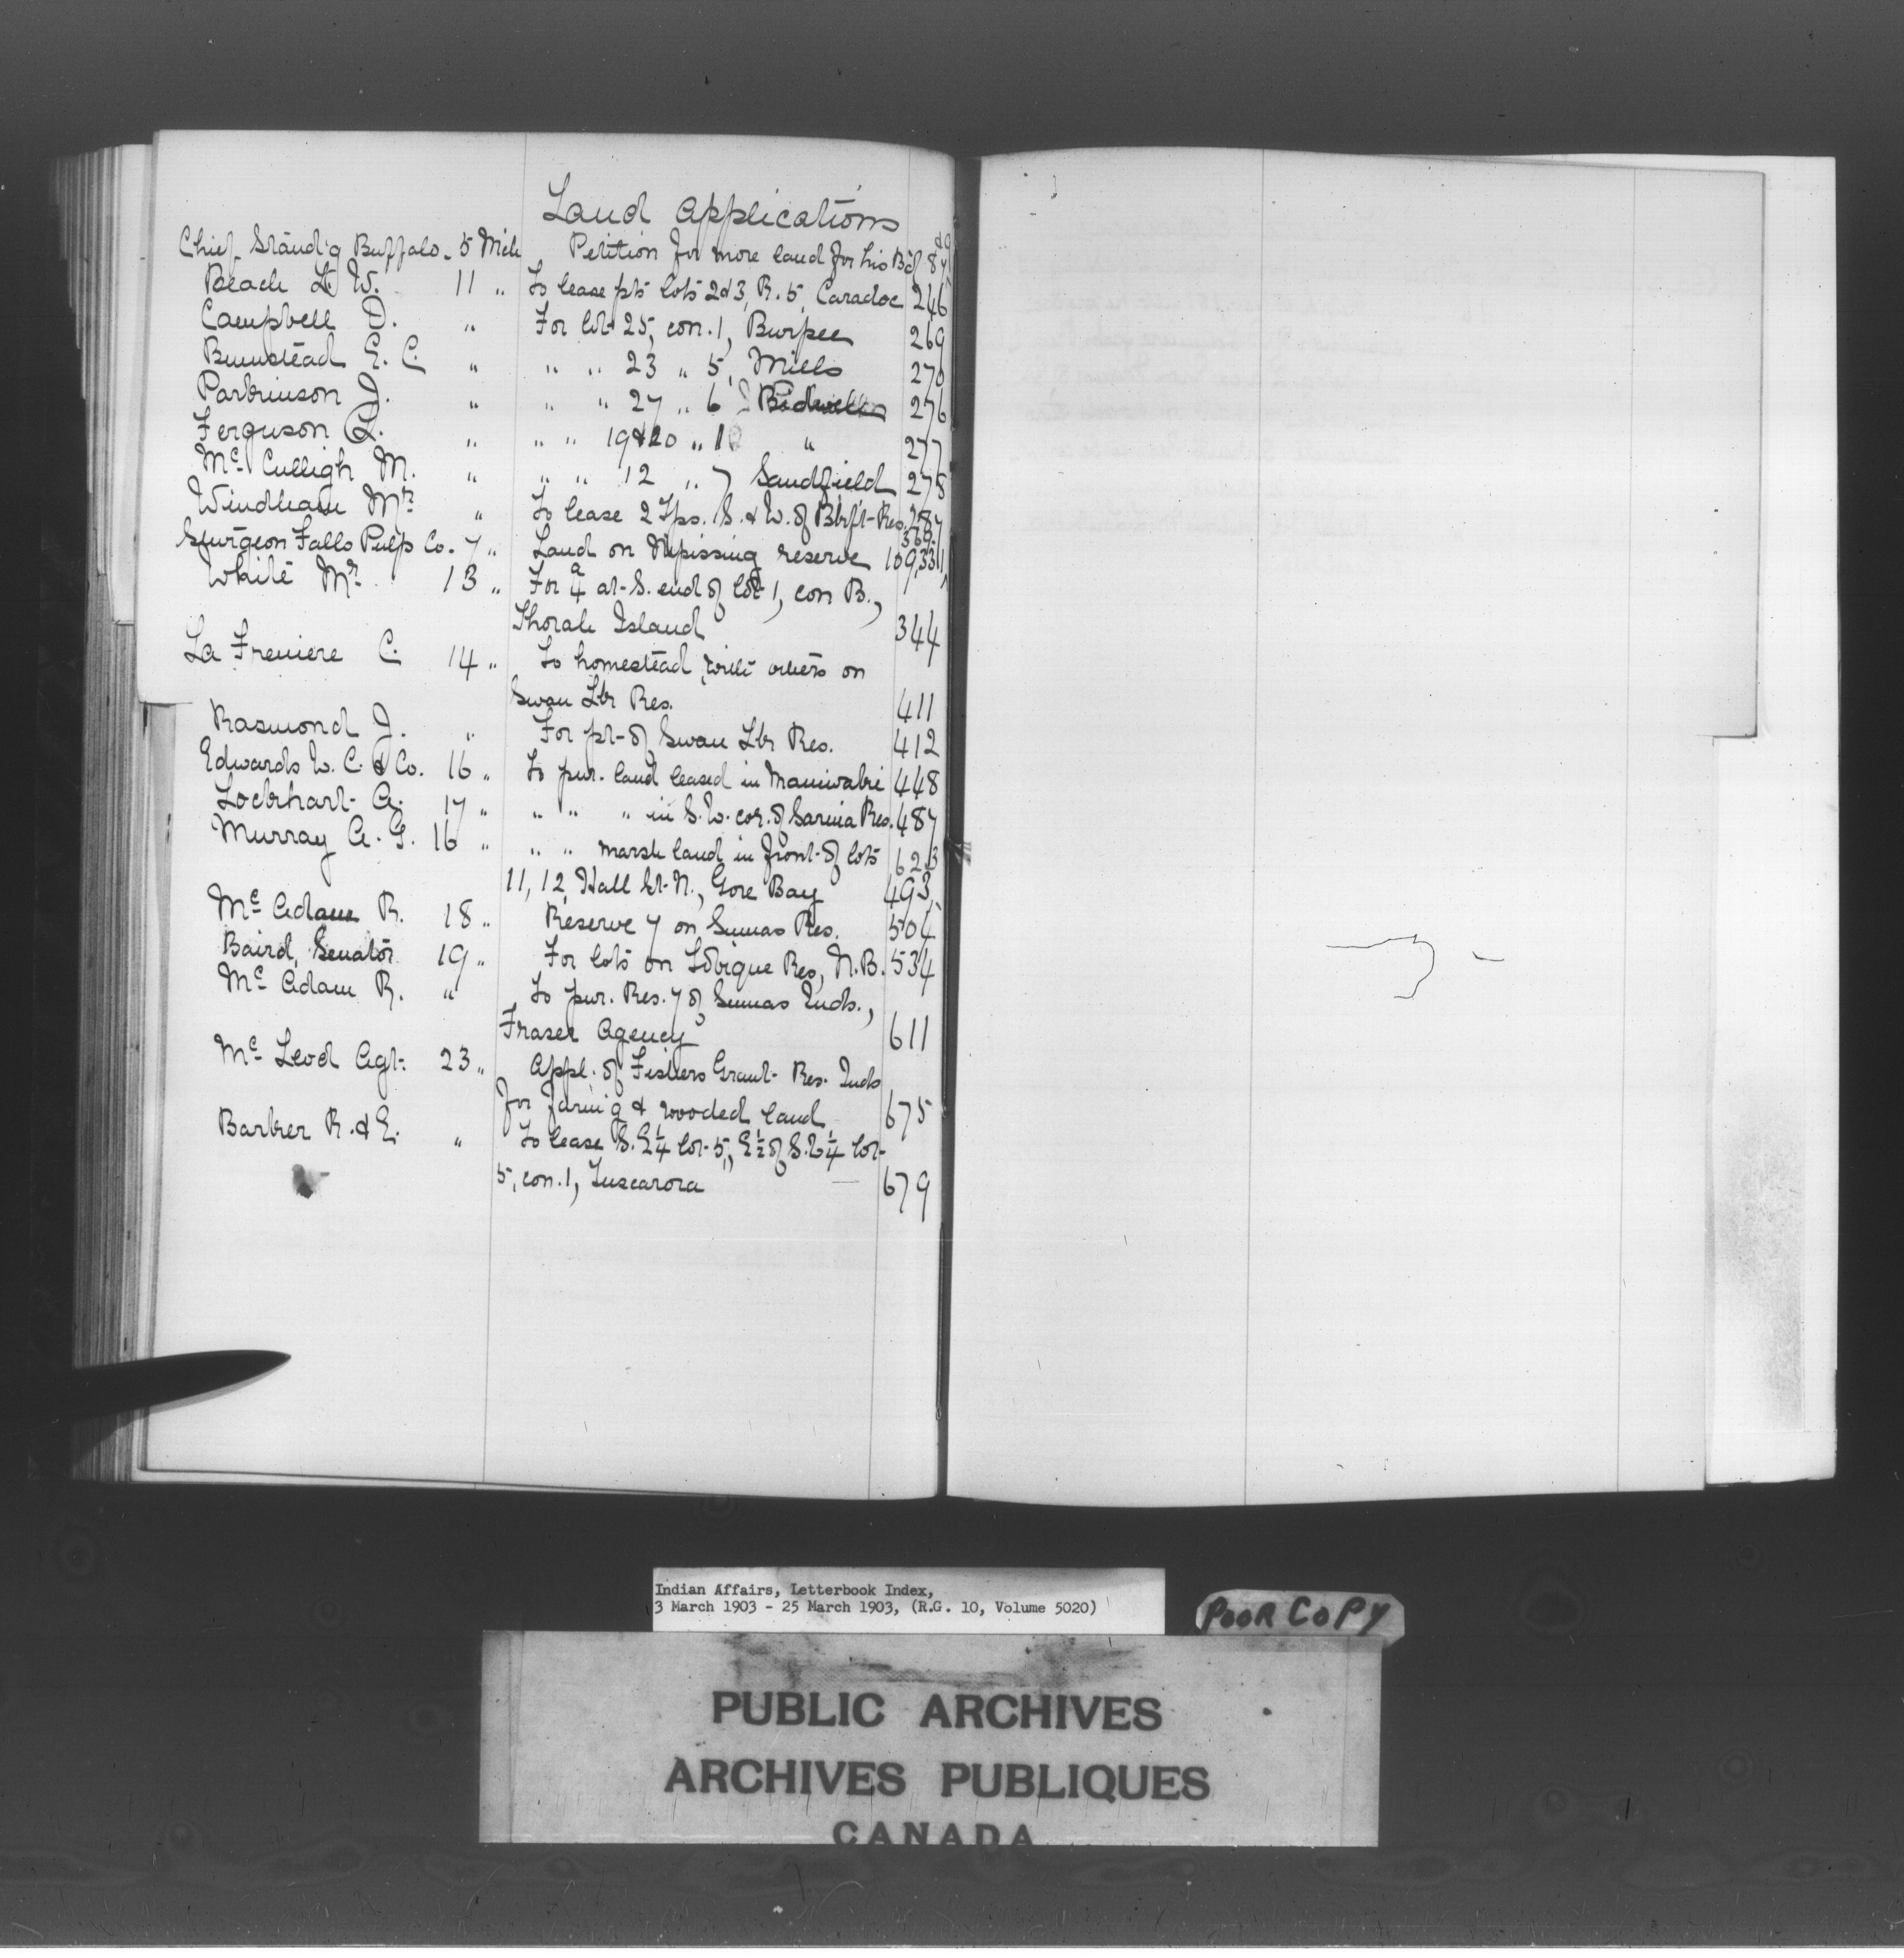 Land Applications
Chief Stand'g Buffalo. 5 Mch Petition for more land for his Bd 87
Beach L. W. 11 " To lease pts lots 2&3, R. 5, Caradoc 246
Campbell D. " For lot 25, con. 1, Burpee 269
Bumstead E. C. " " " 23 " 5, Mills 270
Parkinson J. " " " 27 " 6 Bidwell 276
Ferguson " " " 19&20 " 10 " 277
Mc Culligh M. " " " 12 " 7 Sandfield 278
Windham Mr " To lease 2 Tps. S. & W. of Blkf't Res. 287
369
Sturgeon Falls Pulp Co. 7 " Land on Nipissing reserve 109, 331,
White Mr 13 " For a/4 at S. end of lot 1, con B.,
Thorah Island 344
La Freniere C. 14 " To homestead with others on
Swan Lk Res. 411
Rasmond J. " For pt of Swan Lk Res. 412
Edwards W. C. & Co. 16 " To pur. land leased in Maniwaki 448
Lockhart A. 17 " " " " in S. W. cor. of Sarnia Res. 487
Murray A. G. 16 " " " marsh land in front of lots 623
11, 12, Hall St. N., Gore Bay 493,
Mc Adam R. 18 " Reserve 7 on Sumas Res. 504
Baird, Senator 19 " For lots on Tobique Res, N.B. 534
Mc Adam R. " To pur. Res. 7 of Sumas Inds.,
Fraser Agency 611
Mc Leod Agt. 23 " Appl. of Fishers Grant Res. Inds
for farm'g & wooded land 675
Barber R. & E. " To lease S. E¼ lot 5, E½ of S.W¼ lot
5, con. 1, Tuscarora 679
Indian Affairs, Letterbook Index,
3 March 1903 - 25 March 1903, (R.G. 10, Volume 5020)
POOR COPY
PUBLIC ARCHIVES
ARCHIVES PUBLIQUES
CANADA